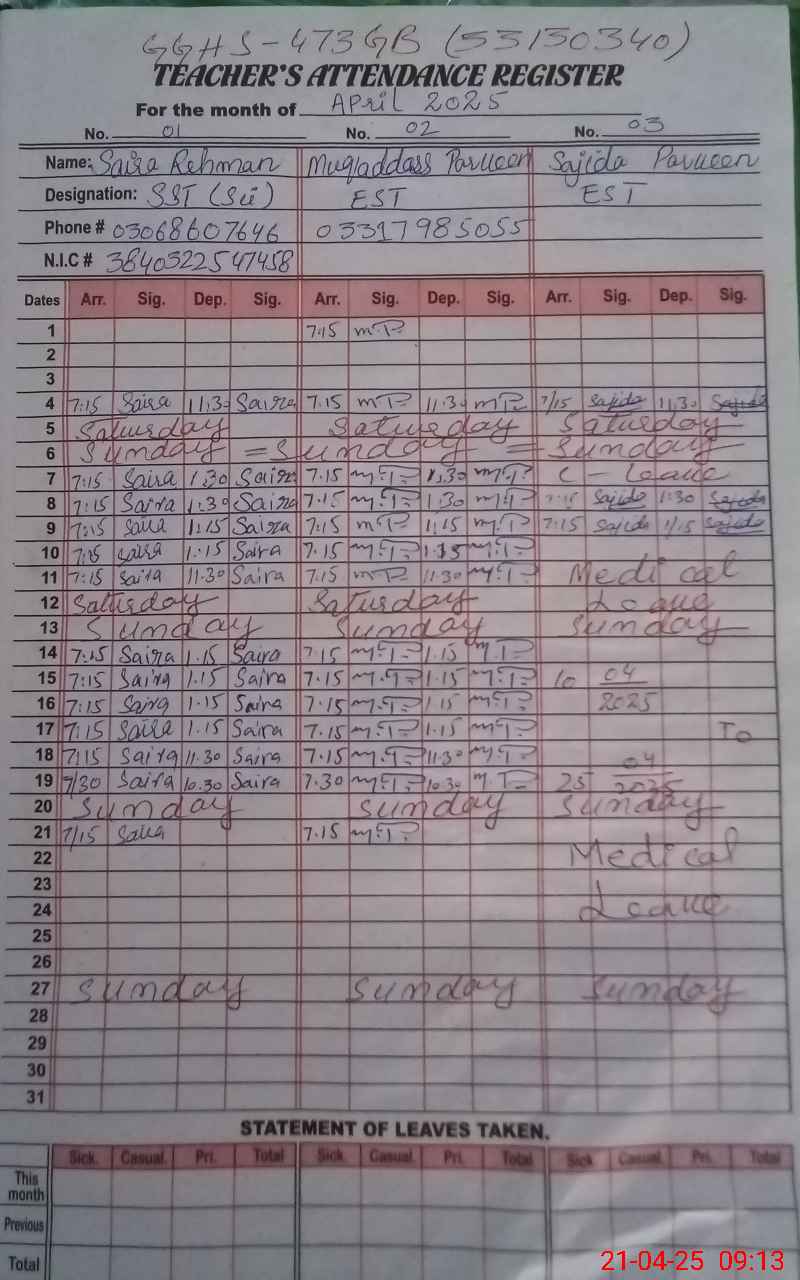 GGHS-473GB (53130340)
TEACHER'S ATTENDANCE REGISTER
For the month of April 2025
No. 01 No. 02 No. 03
Name: Saira Rehman Muqaddass Parveen Sajida Parveen
Designation: SST (Sci) EST EST
Phone # 03068607646 03317985055
N.I.C # 3840322547458
Dates Arr. Sig. Dep. Sig. Arr. Sig. Dep. Sig. Arr. Sig. Dep. Sig.
1 7.15 m.P
2
3
4 7:15 Saira 11:30 Saira 7.15 mP 11.30 mP 7/15 Sajida 11:30 Sajida
5 Saturday Saturday Saturday
6 Sunday = Sunday = Sunday
7 7:15 Saira 1.30 Saira 7.15 m.P 1.30 m.P C - Leave
8 7:15 Saira 1:30 Saira 7.15 m.P 1.30 m.P 7:15 Sajida 1:30 Sajida
9 7:15 Saira 1:15 Saira 7:15 mP 1.15 m.P 7:15 Sajida 1/15 Sajida
10 7:15 Saira 1.15 Saira 7.15 m.P 1.15 m.P
11 7:15 Saira 11.30 Saira 7.15 mP 11.30 m.P Medical
12 Saturday Saturday Leave
13 Sunday Sunday Sunday
14 7:15 Saira 1.15 Saira 7.15 m.P 1.15 m.P
15 7:15 Saira 1.15 Saira 7.15 m.P 1.15 m.P 10 04
16 7:15 Saira 1.15 Saira 7.15 m.P 1.15 m.P 2025
17 7:15 Saira 1.15 Saira 7.15 m.P 1.15 m.P To
18 7:15 Saira 11.30 Saira 7.15 m.P 11.30 m.P 04
19 7/30 Saira 10.30 Saira 7.30 m.P 10.30 m.P 25 2025
20 Sunday Sunday Sunday
21 7/15 Saira 7.15 m.P
22 Medical
23
24 Leave
25
26
27 Sunday Sunday Sunday
28
29
30
31
STATEMENT OF LEAVES TAKEN.
Sick. Casual. Pri. Total Sick Casual. Pri. Total Sick Casual. Pri. Total
This month
Previous
Total
21-04-25 09:13